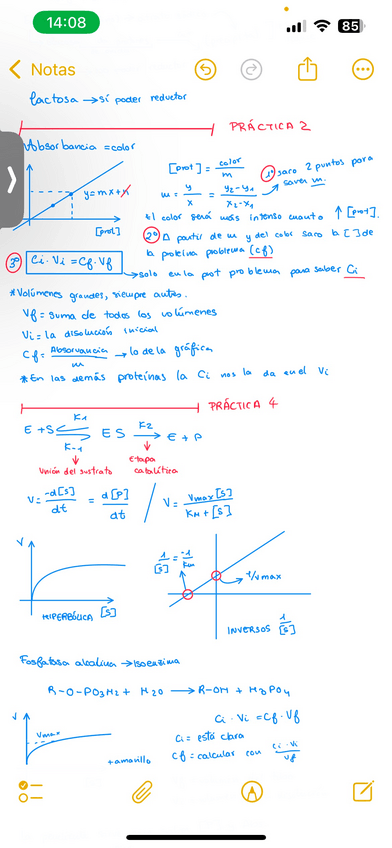 14:08
85
Notas
lactosa → sí poder reductor
PRÁCTICA 2
Absorbancia = color
y = mx + n
[prot]
[prot] = color / m
1º saco 2 puntos para saber m.
m = y / x = y2 - y1 / x2 - x1
el color será más intenso cuanto ↑ [prot].
2º A partir de m y del color saco la [ ] de la proteína problema (Cf)
3º Ci · Vi = Cf · Vf
→ solo en la prot problema para saber Ci
* Volúmenes grandes, siempre antes.
Vf = suma de todos los volúmenes
Vi = la disolución inicial
Cf = Absorvancia / m → lo de la gráfica
* En las demás proteínas la Ci nos la da en el Vi
PRÁCTICA 4
E + S ⇌ ES → E + P
K1
K-1
K2
Unión del sustrato
Etapa catalítica
V = -d[S] / dt = d[P] / dt / V = Vmax [S] / KM + [S]
V
HIPERBÓLICA [S]
1 / [S] = -1 / KM
1/Vmax
INVERSOS 1 / [S]
Fosfatasa alcalina → Isoenzima
R-O-PO3H2 + H2O → R-OH + H3PO4
V
Vmax
+ amarillo
Ci · Vi = Cf · Vf
Ci = está clara
Cf = calcular con Ci · Vi / Vf